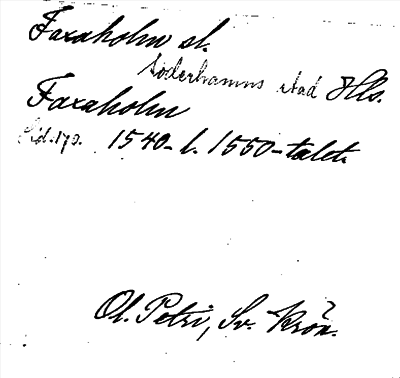 Faxaholm sl.
Söderhamns stad Hls.
Faxaholm
Sid. 170. 1540- l. 1550-talet.
Ol. Petri, Sv. Krön.